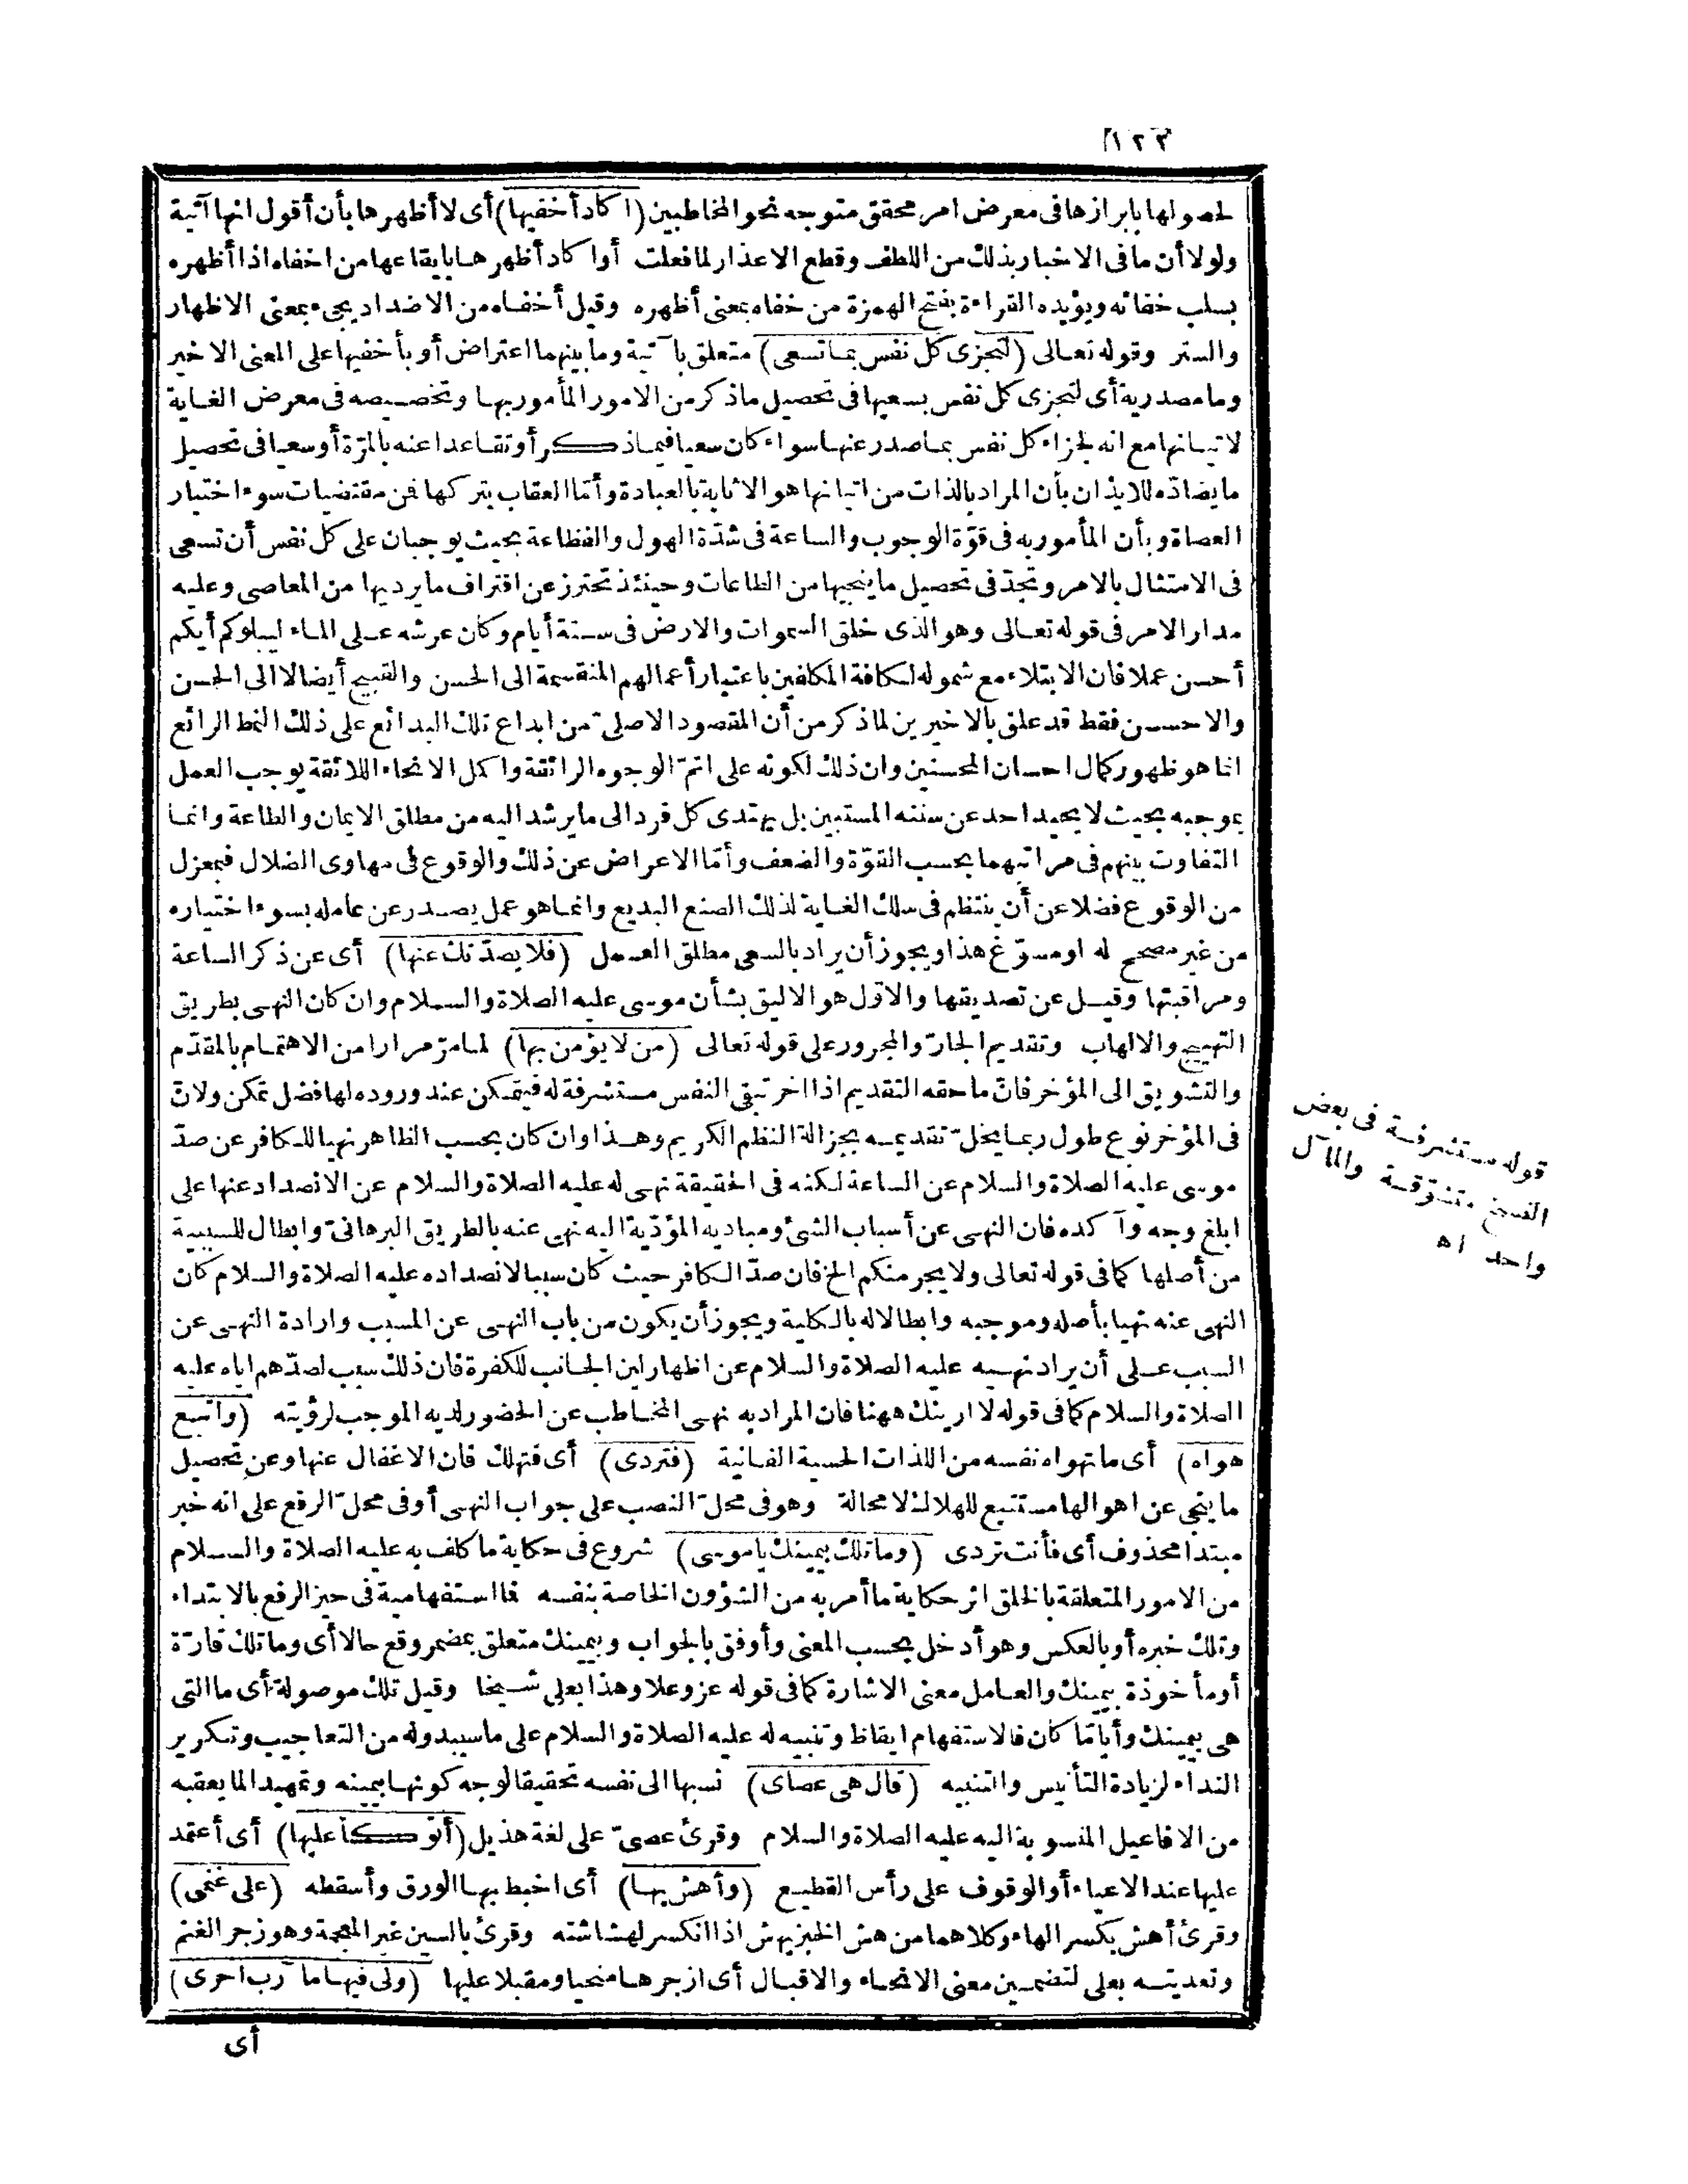 ١٢٣
لحصولها بابرازها فى معرض امر محقق متوجه نحو المخاطبين (اكاد أخفيها) أى لا أظهرها بأن أقول انها آتية
ولولا أن ما فى الاخبار بذلك من اللطف وقطع الاعذار لما فعلت أو اكاد أظهرها بايقاعها من اخفاه اذا أظهره
بسلب خفائه ويؤيده القراءة بفتح الهمزة من خفاه بمعنى أظهره وقيل أخفاه من الاضداد يجىء بمعنى الاظهار
والستر وقوله تعالى (لتجزى كل نفس بما تسعى) متعلق بآتية وما بينهما اعتراض أو بأخفيها على المعنى الاخير
وما مصدرية أى لتجزى كل نفس بسعيها فى تحصيل ما ذكر من الامور المأمور بها وتخصيصه فى معرض الغاية
لاتيانها مع انه لجزاء كل نفس بما صدر عنها سواء كان سعيا فيما ذكر أو تقاعدا عنه بالمرّة أو سعيا فى تحصيل
ما يضادّه للايذان بأن المراد بالذات من اتيانها هو الاثابة بالعبادة وأمّا العقاب بتركها فمن مقتضيات سوء اختيار
العصاة وبأن المأمور به فى قوّة الوجوب والساعة فى شدّة الهول والفظاعة بحيث يوجبان على كل نفس أن تسعى
فى الامتثال بالامر وتجدّ فى تحصيل ما ينجيها من الطاعات وحينئذ تحترز عن اقتراف ما يرديها من المعاصى وعليه
مدار الامر فى قوله تعالى وهو الذى خلق السموات والارض فى ستة أيام وكان عرشه على الماء ليبلوكم أيكم
أحسن عملا فان الابتلاء مع شموله لكافة المكلفين باعتبار أعمالهم المنقسمة الى الحسن والقبيح أيضا لا الى الحسن
والاحسن فقط قد علق بالاخيرين لما ذكر من أن المقصود الاصلىّ من ابداع تلك البدائع على ذلك النمط الرائع
انما هو ظهور كمال احسان المحسنين وان ذلك لكونه على اتمّ الوجوه الرائقة واكمل الانحاء اللائقة يوجب العمل
بموجبه بحيث لا يحيد احد عن سننه المستبين بل يهتدى كل فرد الى ما يرشد اليه من مطلق الايمان والطاعة وانما
التفاوت بينهم فى مراتبهما بحسب القوّة والضعف وأمّا الاعراض عن ذلك والوقوع فى مهاوى الضلال فبمعزل
من الوقوع فضلا عن أن ينتظم فى سلك الغاية لذلك الصنع البديع وانما هو عمل يصدر عن عامله بسوء اختياره
من غير مصحح له او مسوّغ هذا ويجوز أن يراد بالسعى مطلق العمل (فلا يصدّنك عنها) أى عن ذكر الساعة
ومراقبتها وقيل عن تصديقها والاوّل هو الاليق بشأن موسى عليه الصلاة والسلام وان كان النهى بطريق
التهييج والالهاب وتقديم الجارّ والمجرور على قوله تعالى (من لا يؤمن بها) لما مرّ مرارا من الاهتمام بالمقدّم
والتشويق الى المؤخر فانّ ما حقه التقديم اذا اخر تبقى النفس مستشرفة له فيتمكن عند وروده لها فضل تمكن ولانّ
فى المؤخر نوع طول ربما يخلّ تقديمه بجزالة النظم الكريم وهذا وان كان بحسب الظاهر نهيا للكافر عن صدّ
موسى عليه الصلاة والسلام عن الساعة لكنه فى الحقيقة نهى له عليه الصلاة والسلام عن الانصداد عنها على
ابلغ وجه وآكده فان النهى عن أسباب الشئ ومباديه المؤدّية اليه نهى عنه بالطريق البرهانىّ وابطال للسببية
من أصلها كما فى قوله تعالى ولا يجرمنكم الخ فان صدّ الكافر حيث كان سببا لانصداده عليه الصلاة والسلام كان
النهى عنه نهيا بأصله وموجبه وابطالا له بالكلية ويجوز أن يكون من باب النهى عن المسبب وارادة النهى عن
السبب على أن يراد نهيه عليه الصلاة والسلام عن اظهار لين الجانب للكفرة فان ذلك سبب لصدّهم اياه عليه
الصلاة والسلام كما فى قوله لا ارينك ههنا فان المراد به نهى المخاطب عن الحضور لديه الموجب لرؤيته (واتبع
هواه) أى ما تهواه نفسه من اللذات الحسية الفانية (فتردى) أى فتهلك فان الاغفال عنها وعن تحصيل
ما ينجى عن اهوالها مستتبع للهلاك لا محالة وهو فى محلّ النصب على جواب النهى أو فى محلّ الرفع على انه خبر
مبتدا محذوف أى فأنت تردى (وما تلك بيمينك يا موسى) شروع فى حكاية ما كلف به عليه الصلاة والسلام
من الامور المتعلقة بالخلق اثر حكاية ما أمر به من الشؤون الخاصة بنفسه فما استفهامية فى حيز الرفع بالابتداء
وتلك خبره أو بالعكس وهو أدخل بحسب المعنى وأوفق بالجواب وبيمينك متعلق بمضمر وقع حالا أى وما تلك قارّة
أو مأخوذة بيمينك والعامل معنى الاشارة كما فى قوله عز وعلا وهذا بعلى شيخا وقيل تلك موصولة أى ما التى
هى بيمينك وأياما كان فالاستفهام ايقاظ وتنبيه له عليه الصلاة والسلام على ما سيبدو له من التعاجيب وتكرير
النداء لزيادة التأنيس والتنبيه (قال هى عصاى) نسبها الى نفسه تحقيقا لوجه كونها بيمينه وتمهيدا لما يعقبه
من الافاعيل المنسوبة اليه عليه الصلاة والسلام وقرئ عصىّ على لغة هذيل (أتوكأ عليها) أى أعتمد
عليها عند الاعياء أو الوقوف على رأس القطيع (وأهش بها) أى اخبط بها الورق وأسقطه (على غنمى)
وقرئ أهش بكسر الهاء وكلاهما من هش الخبز يهش اذا انكسر لهشاشته وقرئ بالسين غير المعجمة وهو زجر الغنم
وتعديته بعلى لتضمين معنى الانحاء والاقبال أى ازجرها منحيا ومقبلا عليها (ولى فيها مآرب اخرى)
أى
قوله مستشرفة فى بعض
النسخ متشوّقة والمآل
واحد اه